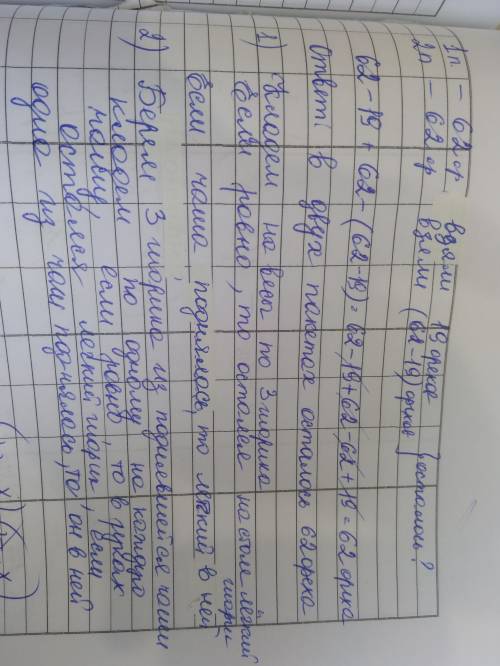 1п – 62 ор взяли 19 орехов } осталось?
2п – 62 ор взяли (62-19) орехов
62 – 19 + 62 – (62 – 19) = 62 – 19 + 62 – 62 + 19 = 62 ореха
Ответ: в двух пакетах осталось 62 ореха
1) Кладем на весы по 3 шарика
Если равно, то оставлен на столе легкий шарик
Если чаша поднялась, то легкий в ней
2) Берем 3 шарика из поднявшейся чаши
кладем по одному на каждую
чашу, если равно, то в руках
остался легкий шарик, если
одна из чаш поднялась, то он в ней